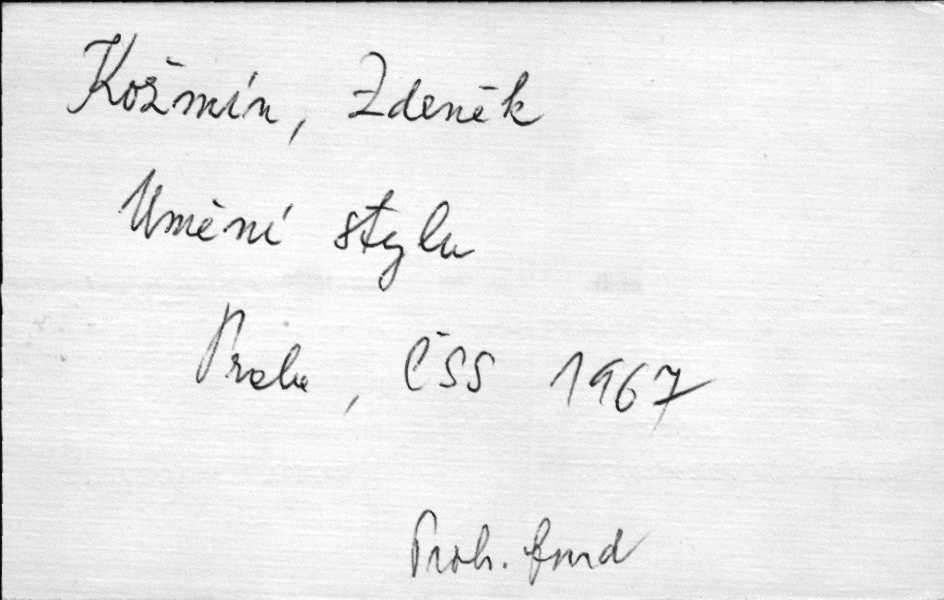 Kožmín, Zdeněk
Umění stylu
Praha, ČSS 1967
Proh. fond